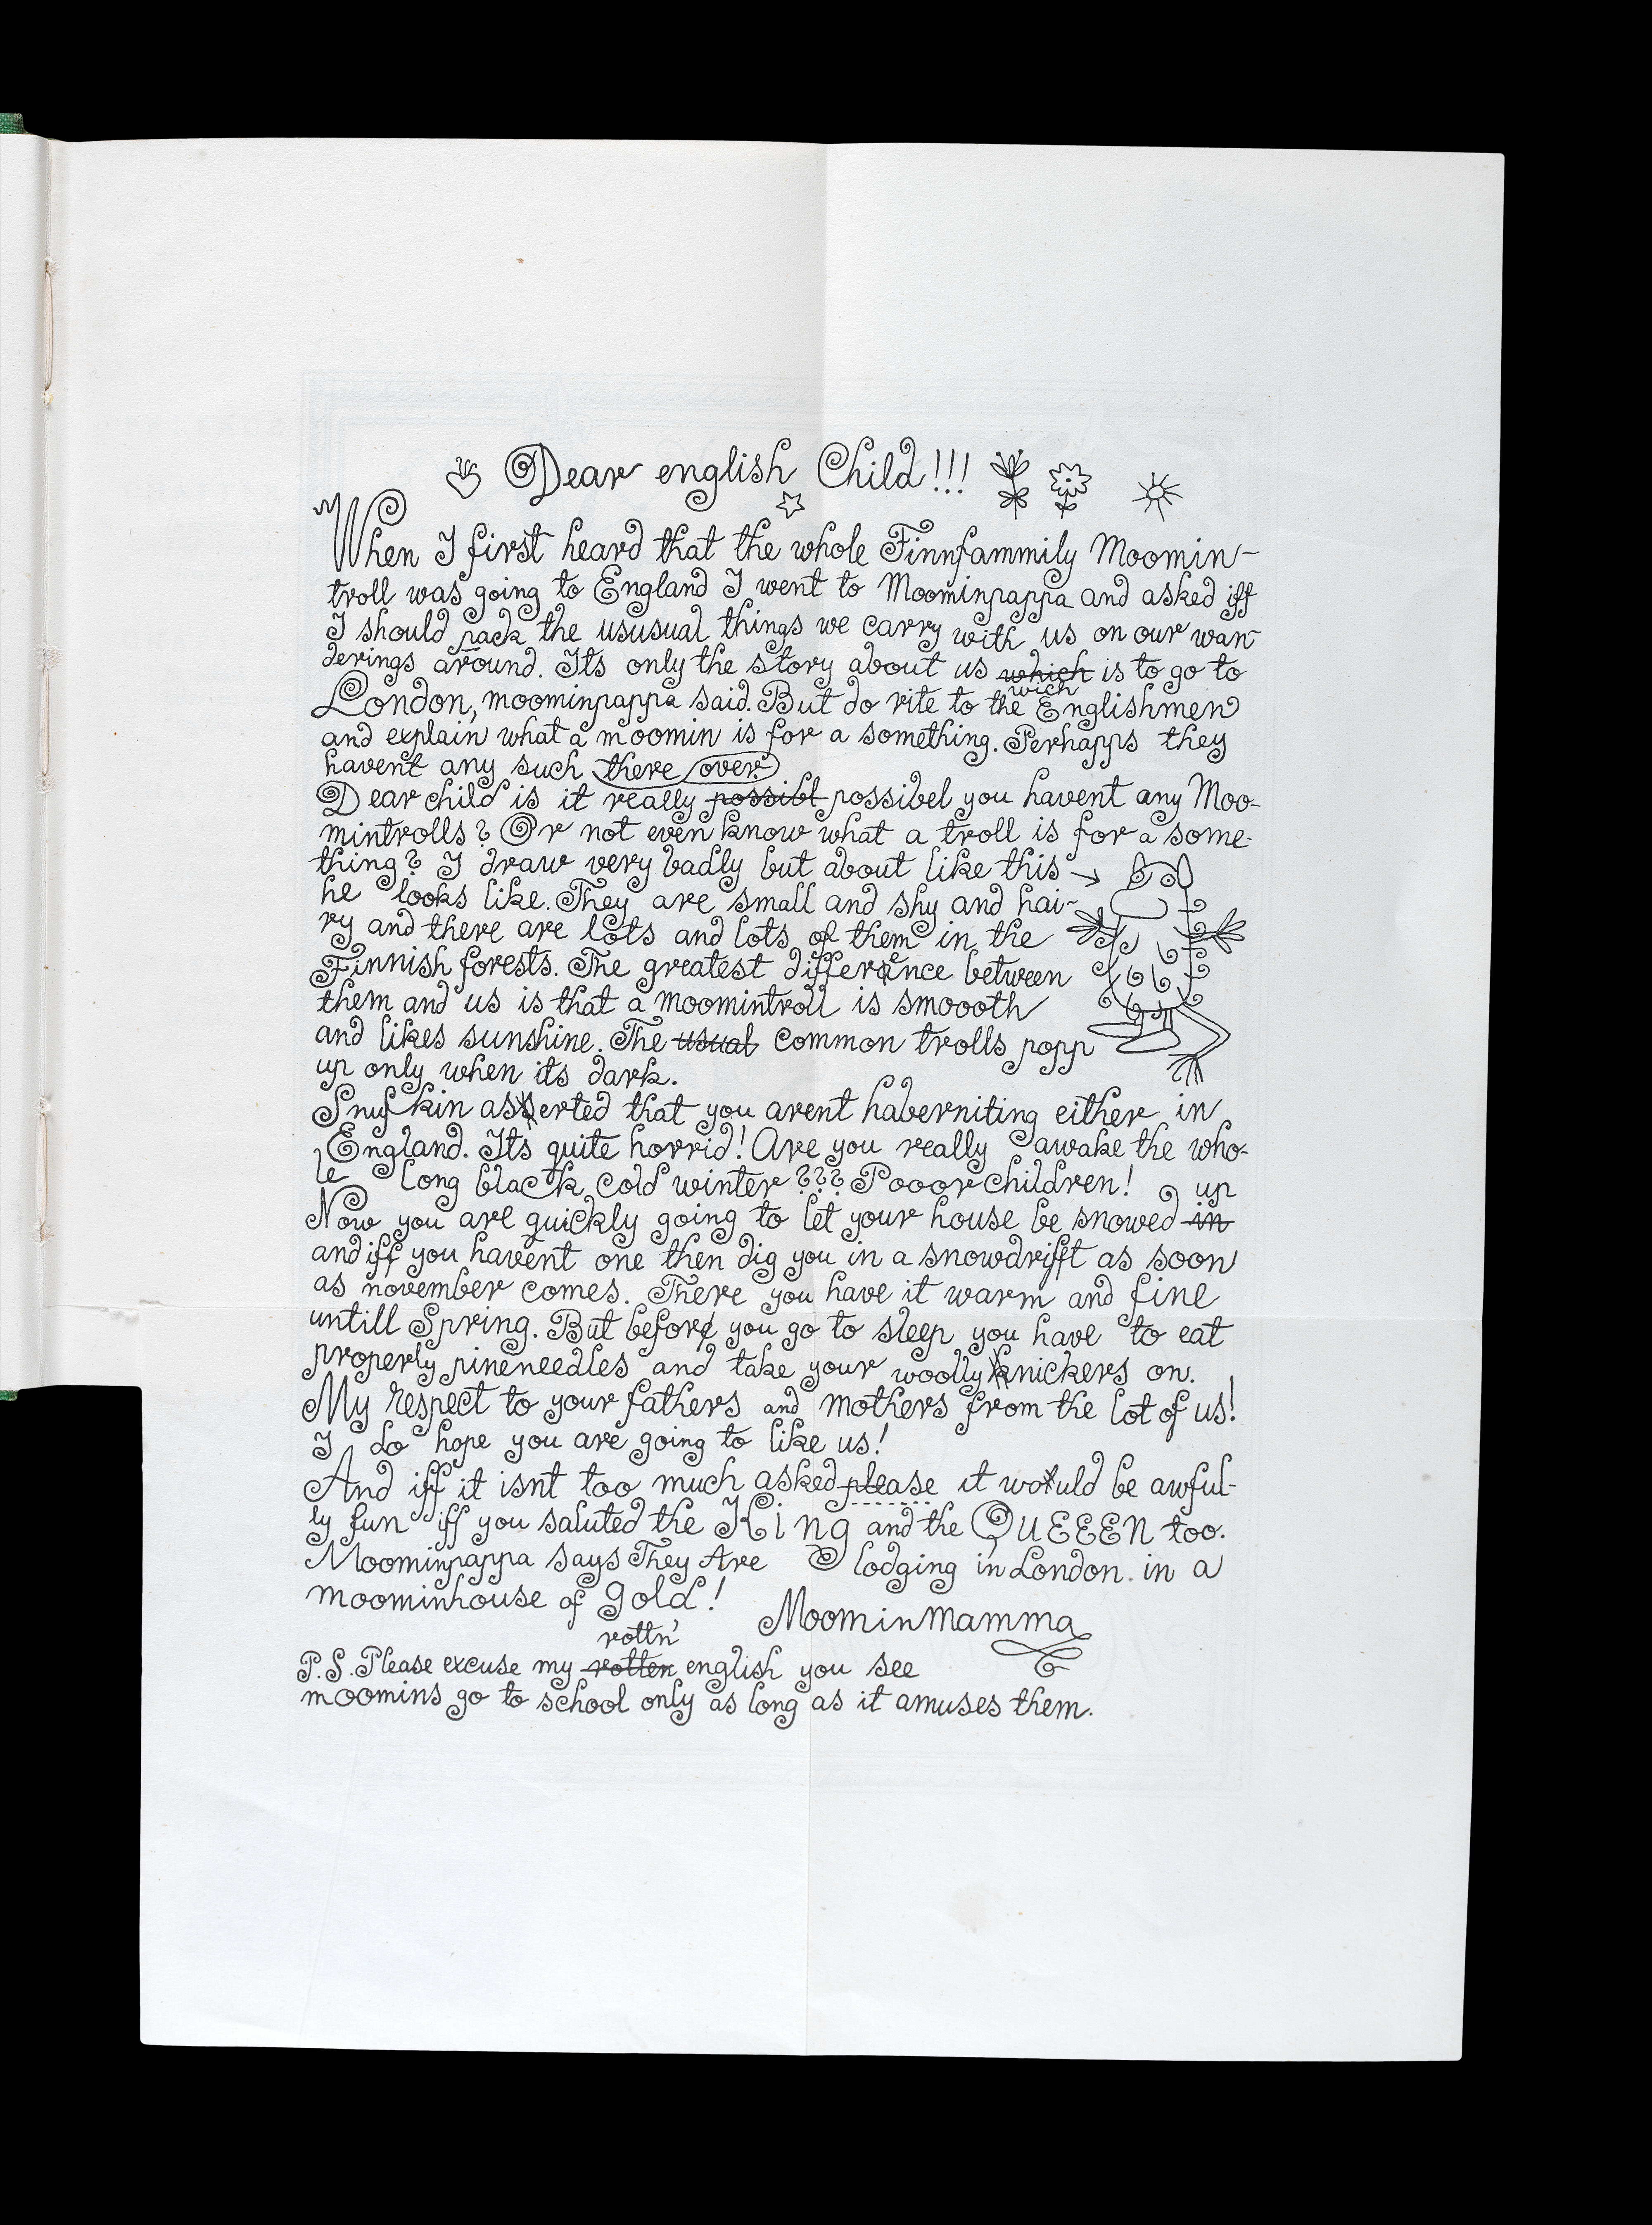 Dear english Child!!!
When I first heard that the whole Finnfammily Moomin-
troll was going to England I went to Moominpappa and asked iff
I should pack the ususual things we carry with us on our wan-
derings around. Its only the story about us which is to go to
wich
London, moominpappa said. But do rite to the Englishmen
and explain what a moomin is for a something. Perhapps they
havent any such there over.
Dear child is it really possibl possibel you havent any Moo-
mintrolls? Or not even know what a troll is for a some-
thing? I draw very badly but about like this →
he looks like. They are small and shy and hai-
ry and there are lots and lots of them in the
Finnish forests. The greatest difference between
them and us is that a moomintroll is smoooth
and likes sunshine. The usual common trolls popp
up only when its dark.
Snufkin asserted that you arent haberniting either in
England. Its quite horrid! Are you really awake the who-
le long black cold winter??? Pooor children!
up
Now you are quickly going to let your house be snowed in
and iff you havent one then dig you in a snowdrifft as soon
as november comes. There you have it warm and fine
untill Spring. But before you go to sleep you have to eat
properly pineneedles and take your woolly knickers on.
My respect to your fathers and mothers from the lot of us!
I do hope you are going to like us!
And iff it isnt too much asked please it would be awful-
ly fun iff you saluted the King and the QUEEEN too.
Moominpappa says They Are lodging in London in a
moominhouse of gold!
MoominMamma
rottn'
P.S. Please excuse my rotten english you see
moomins go to school only as long as it amuses them.